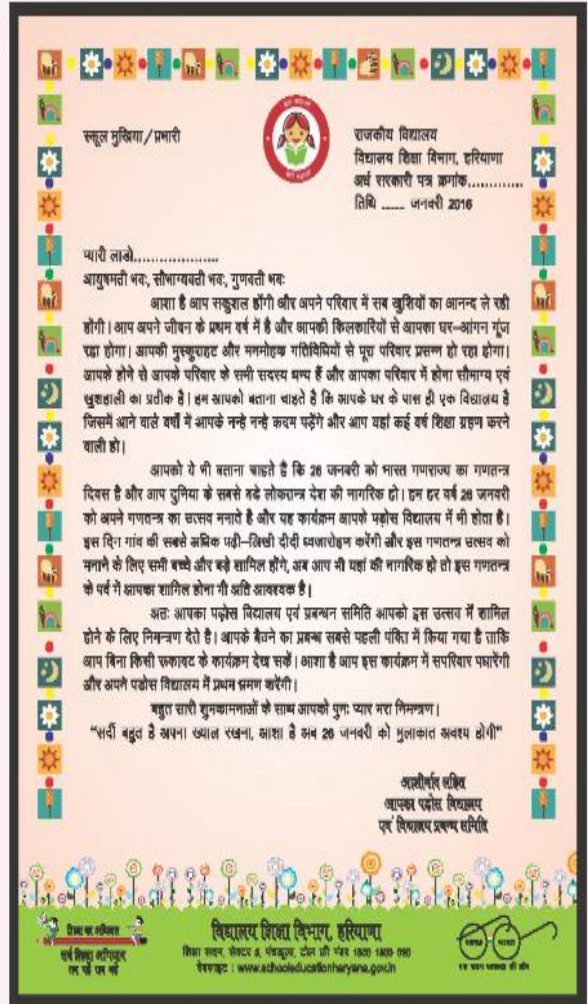 स्कूल मुखिया/प्रभारी
राजकीय विद्यालय
विद्यालय शिक्षा विभाग, हरियाणा
अर्ध सरकारी पत्र क्रमांक.............
तिथि ...... जनवरी 2016
प्यारी लाडो...................
आयुषमती भवः, सौभाग्यवती भवः, गुणवती भवः
आशा है आप सकुशल होंगी और अपने परिवार में सब खुशियों का आनन्द ले रही
होंगी। आप अपने जीवन के प्रथम वर्ष में है और आपकी किलकारियों से आपका घर–आंगन गूंज
रहा होगा। आपकी मुस्कुराहट और मनमोहक गतिविधियों से पूरा परिवार प्रसन्न हो रहा होगा।
आपके होने से आपके परिवार के सभी सदस्य धन्य हैं और आपका परिवार में होना सौभाग्य एवं
खुशहाली का प्रतीक है। हम आपको बताना चाहते है कि आपके घर के पास ही एक विद्यालय है
जिसमें आने वाले वर्षों में आपके नन्हे नन्हे कदम पड़ेंगे और आप यहां कई वर्ष शिक्षा ग्रहण करने
वाली हो।
आपको ये भी बताना चाहते है कि 26 जनवरी को भारत गणराज्य का गणतन्त्र
दिवस है और आप दुनिया के सबसे बडे लोकतन्त्र देश की नागरिक हो। हम हर वर्ष 26 जनवरी
को अपने गणतन्त्र का उत्सव मनाते है और यह कार्यक्रम आपके पड़ोस विद्यालय में भी होता है।
इस दिन गांव की सबसे अधिक पढ़ी–लिखी दीदी ध्वजारोहण करेंगी और इस गणतन्त्र उत्सव को
मनाने के लिए सभी बच्चे और बड़े शामिल होंगे, अब आप भी यहां की नागरिक हो तो इस गणतन्त्र
के पर्व में आपका शामिल होना भी अति आवश्यक है।
अतः आपका पढ़ोस विद्यालय एवं प्रबन्धन समिति आपको इस उत्सव में शामिल
होने के लिए निमन्त्रण देते है। आपके बैठने का प्रबन्ध सबसे पहली पंक्ति में किया गया है ताकि
आप बिना किसी रूकावट के कार्यक्रम देख सकें। आशा है आप इस कार्यक्रम में सपरिवार पधारेंगी
और अपने पडोस विद्यालय में प्रथम भ्रमण करेंगी।
बहुत सारी शुभकामनाओं के साथ आपको पुनः प्यार भरा निमन्त्रण।
“सर्दी बहुत है अपना ख्याल रखना, आशा है अब 26 जनवरी को मुलाकात अवश्य होगी”
आशीर्वाद सहित
आपका पढ़ोस विद्यालय
एवं विद्यालय प्रबन्ध समिति
शिक्षा का अधिकार
सर्व शिक्षा अभियान
सब पढ़ें सब बढ़ें
विद्यालय शिक्षा विभाग, हरियाणा
शिक्षा सदन, सेक्टर 5, पंचकूला, टोल फ्री नंबर
वेबसाइट : www.schooleducationharyana.gov.in
स्वच्छ भारत
एक कदम स्वच्छता की ओर